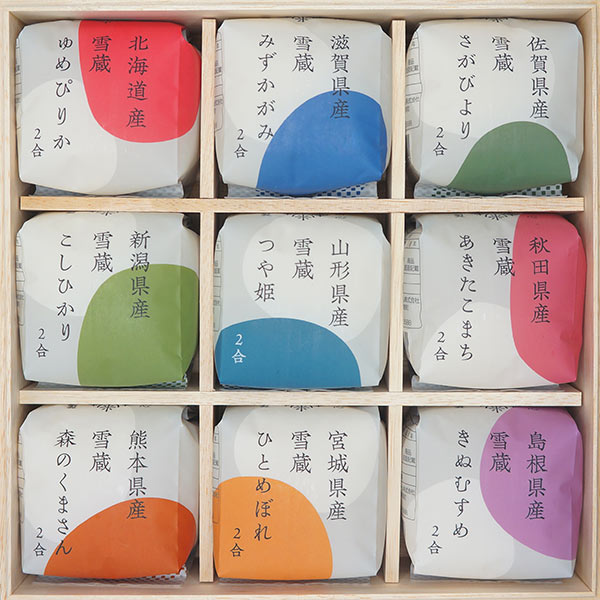 北海道産
雪蔵
ゆめぴりか
2合
滋賀県産
雪蔵
みずかがみ
2合
佐賀県産
雪蔵
さがびより
2合
新潟県産
雪蔵
こしひかり
2合
山形県産
雪蔵
つや姫
2合
秋田県産
雪蔵
あきたこまち
2合
熊本県産
雪蔵
森のくまさん
2合
宮城県産
雪蔵
ひとめぼれ
2合
島根県産
雪蔵
きぬむすめ
2合